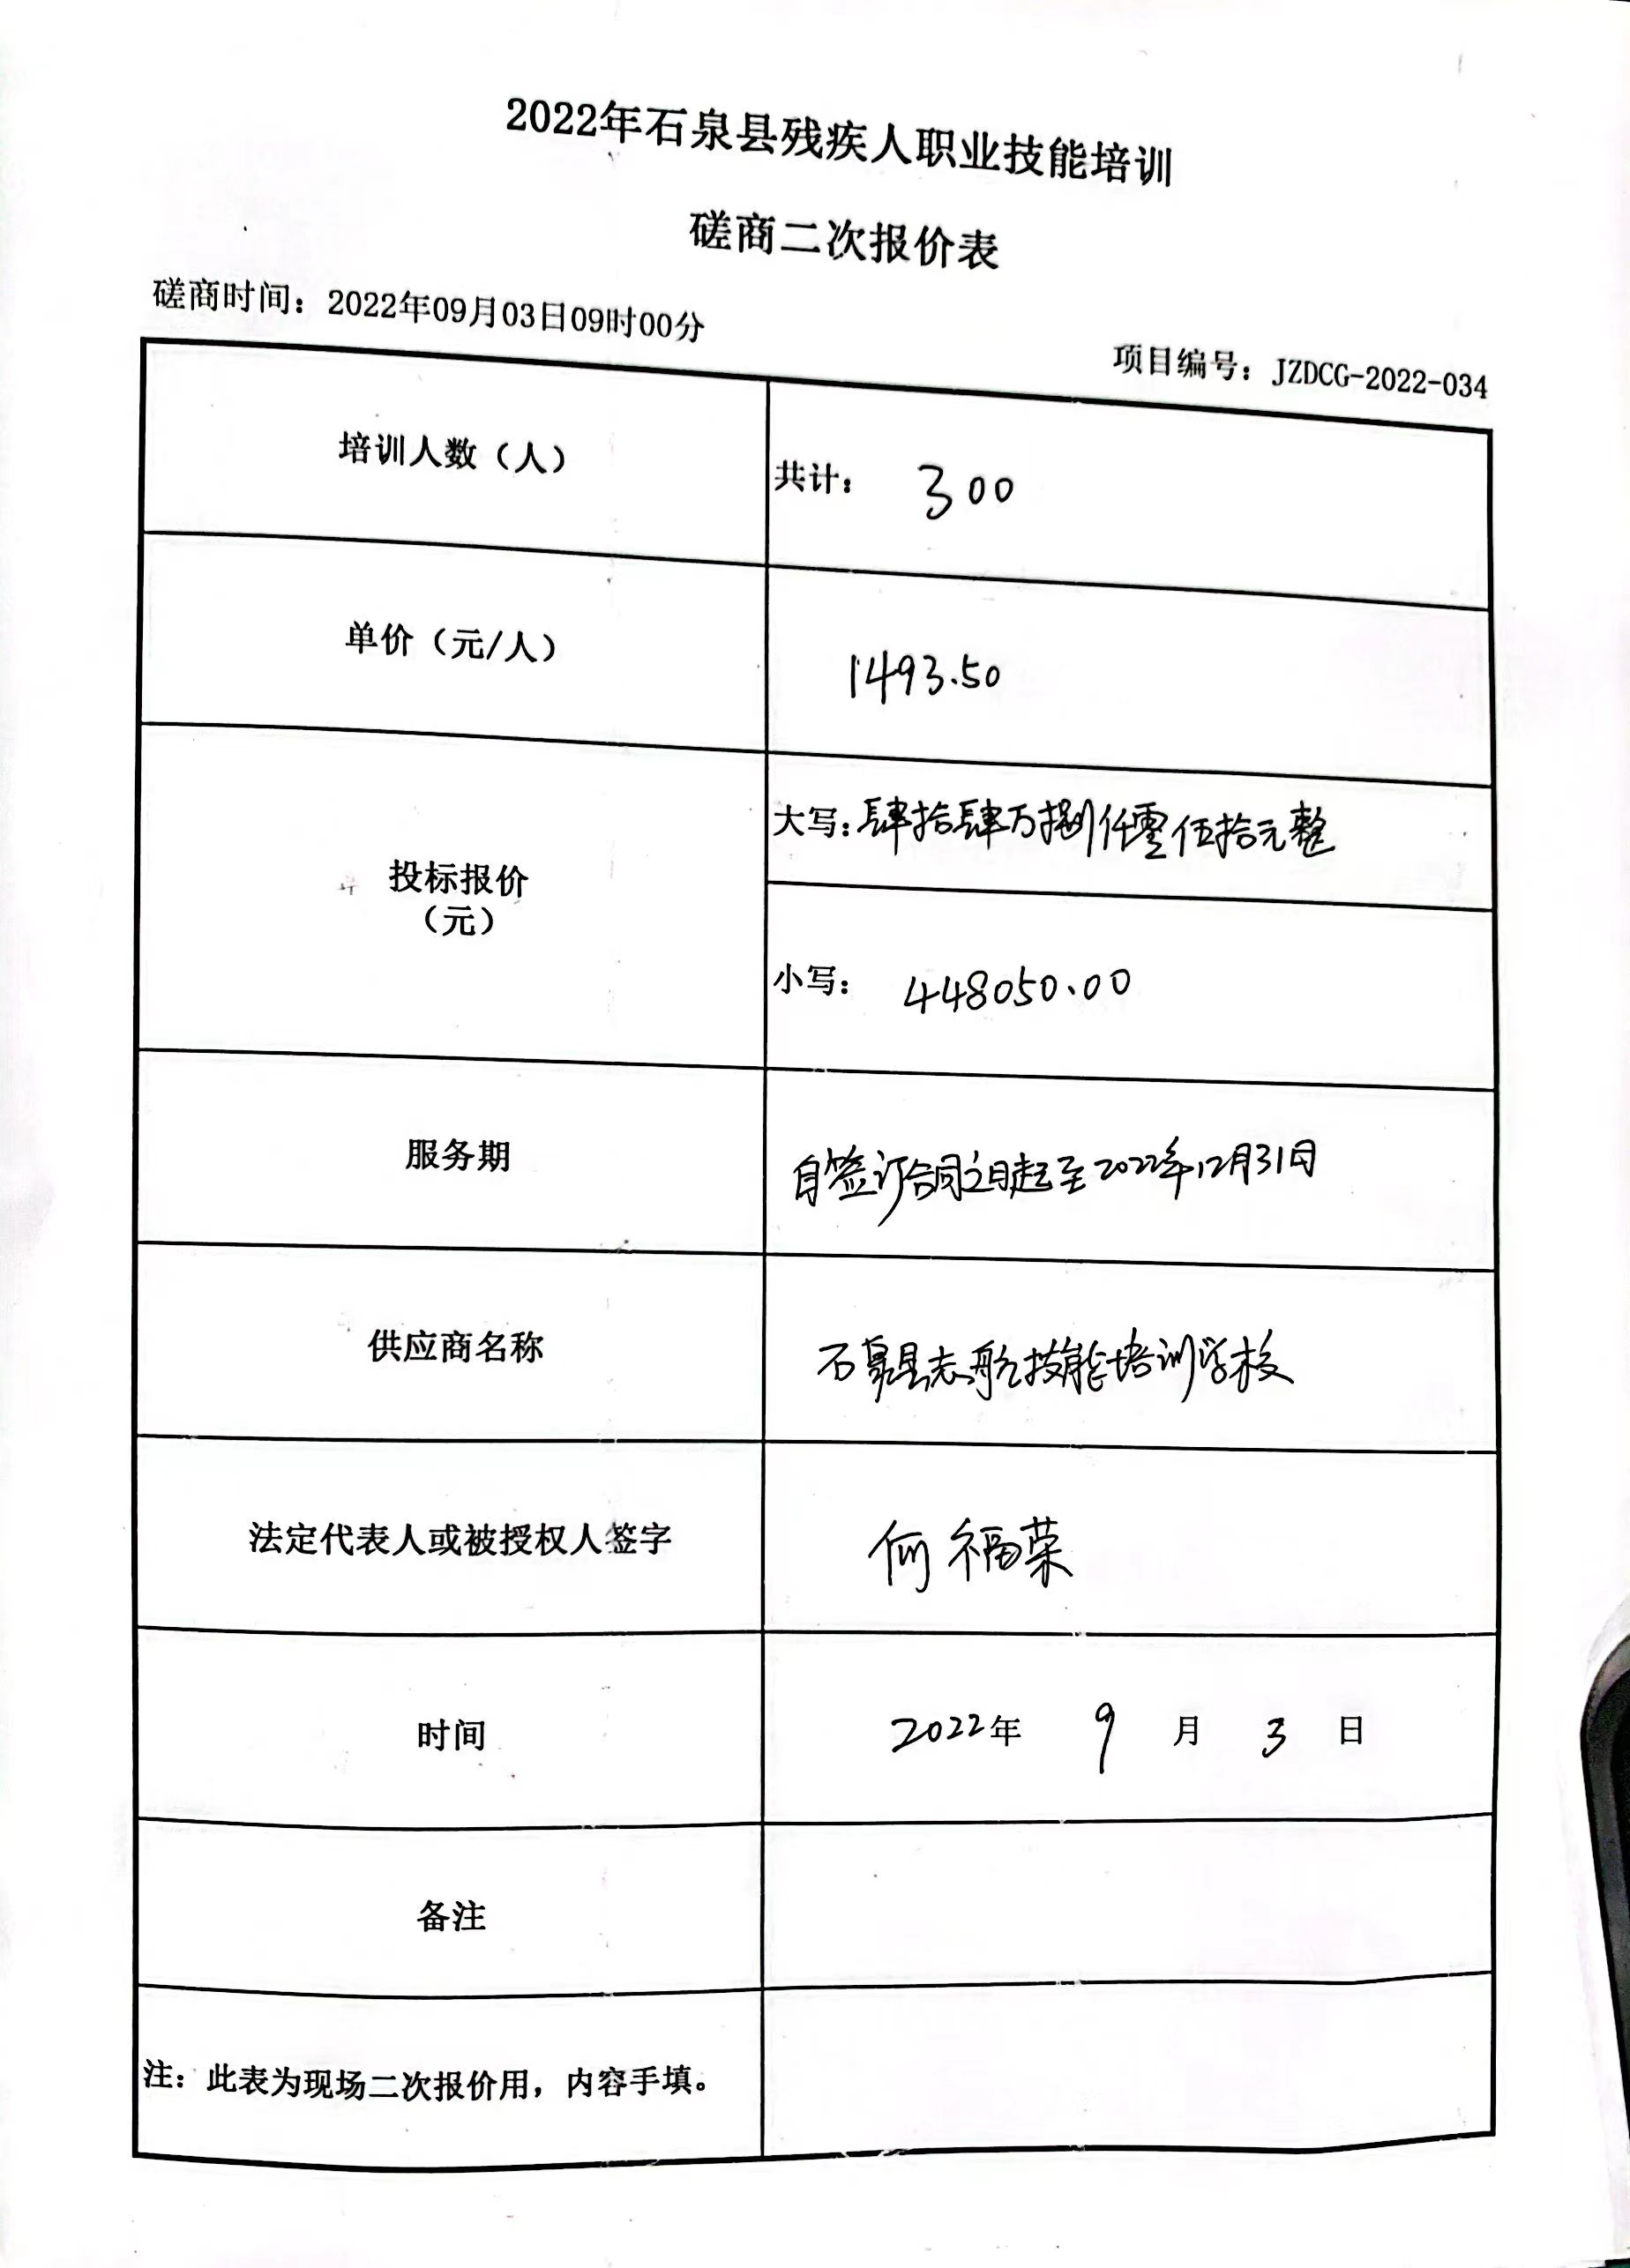 2022年石泉县残疾人职业技能培训
磋商二次报价表
磋商时间：2022年09月03日09时00分
项目编号：JZDCG-2022-034
培训人数（人）
共计： 300
单价（元/人）
1493.50
投标报价
（元）
大写：肆拾肆万捌仟零伍拾元整
小写： 448050.00
服务期
自签订合同之日起至2022年12月31日
供应商名称
石泉县志航技能培训学校
法定代表人或被授权人签字
何福荣
时间
2022年 9 月 3 日
备注
注：此表为现场二次报价用，内容手填。